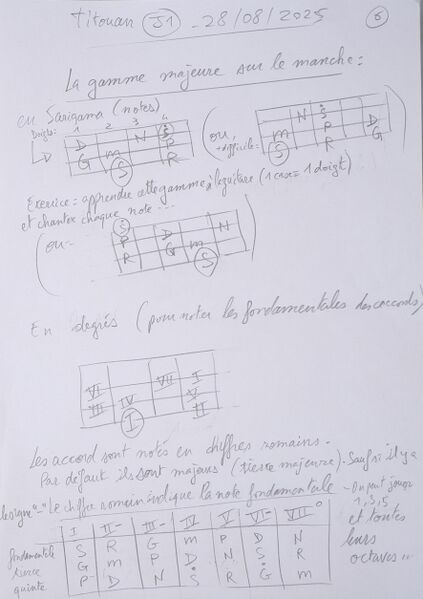 Titouan J1 - 28/08/2025 6
La gamme majeure sur le manche :
en Sarigama (notes)
Doigts : 1 2 3 4
D N Ṡ
G m P
S R
(ou, + difficile :
N Ṡ
m P D
S R G)
Exercice : apprendre cette gamme à la guitare (1 case = 1 doigt)
et chanter chaque note ...
(ou -
Ṡ N
P D
R G m
S)
En degrés (pour noter les fondamentales des accords)
VI VII I
III IV V
I II
Les accord sont notés en chiffres romains -
Par défaut ils sont majeurs (tierce majeure). Sauf si il y a
le signe "-" Le chiffre romain indique la note fondamentale - On peut jouer
1, 3, 5
et toutes
leurs
octaves ..
I II- III- IV V VI- VII-°
fondamentale S R G m P D N
tierce G m P D N Ṡ R
quinte P D N Ṡ R G m